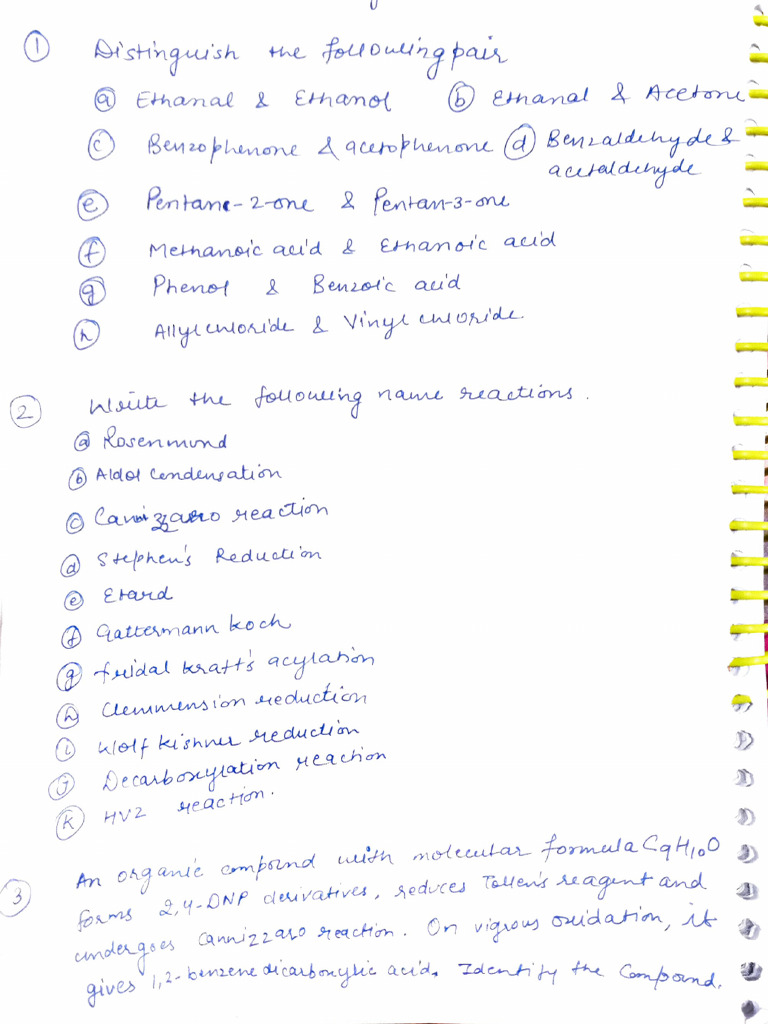 ① Distinguish the following pair
ⓐ Ethanal & Ethanol ⓑ Ethanal & Acetone
ⓒ Benzophenone & acetophenone ⓓ Benzaldehyde &
acetaldehyde
ⓔ Pentane-2-one & Pentan-3-one
ⓕ Methanoic acid & Ethanoic acid
ⓖ Phenol & Benzoic acid
ⓗ Allyl chloride & Vinyl chloride
② Write the following name reactions.
ⓐ Rosenmund
ⓑ Aldol Condensation
ⓒ Cannizzaro reaction
ⓓ Stephen's Reduction
ⓔ Etard
ⓕ Gattermann koch
ⓖ fridal kraft's acylation
ⓗ Clemmension reduction
ⓘ Wolf kishner reduction
ⓙ Decarboxylation reaction
ⓚ HVZ reaction.
③ An organic compound with molecular formula C9H10O
forms 2,4-DNP derivatives, reduces Tollen's reagent and
undergoes Cannizzaro reaction. On vigrous oxidation, it
gives 1,2-benzenedicarboxylic acid. Identify the Compound.